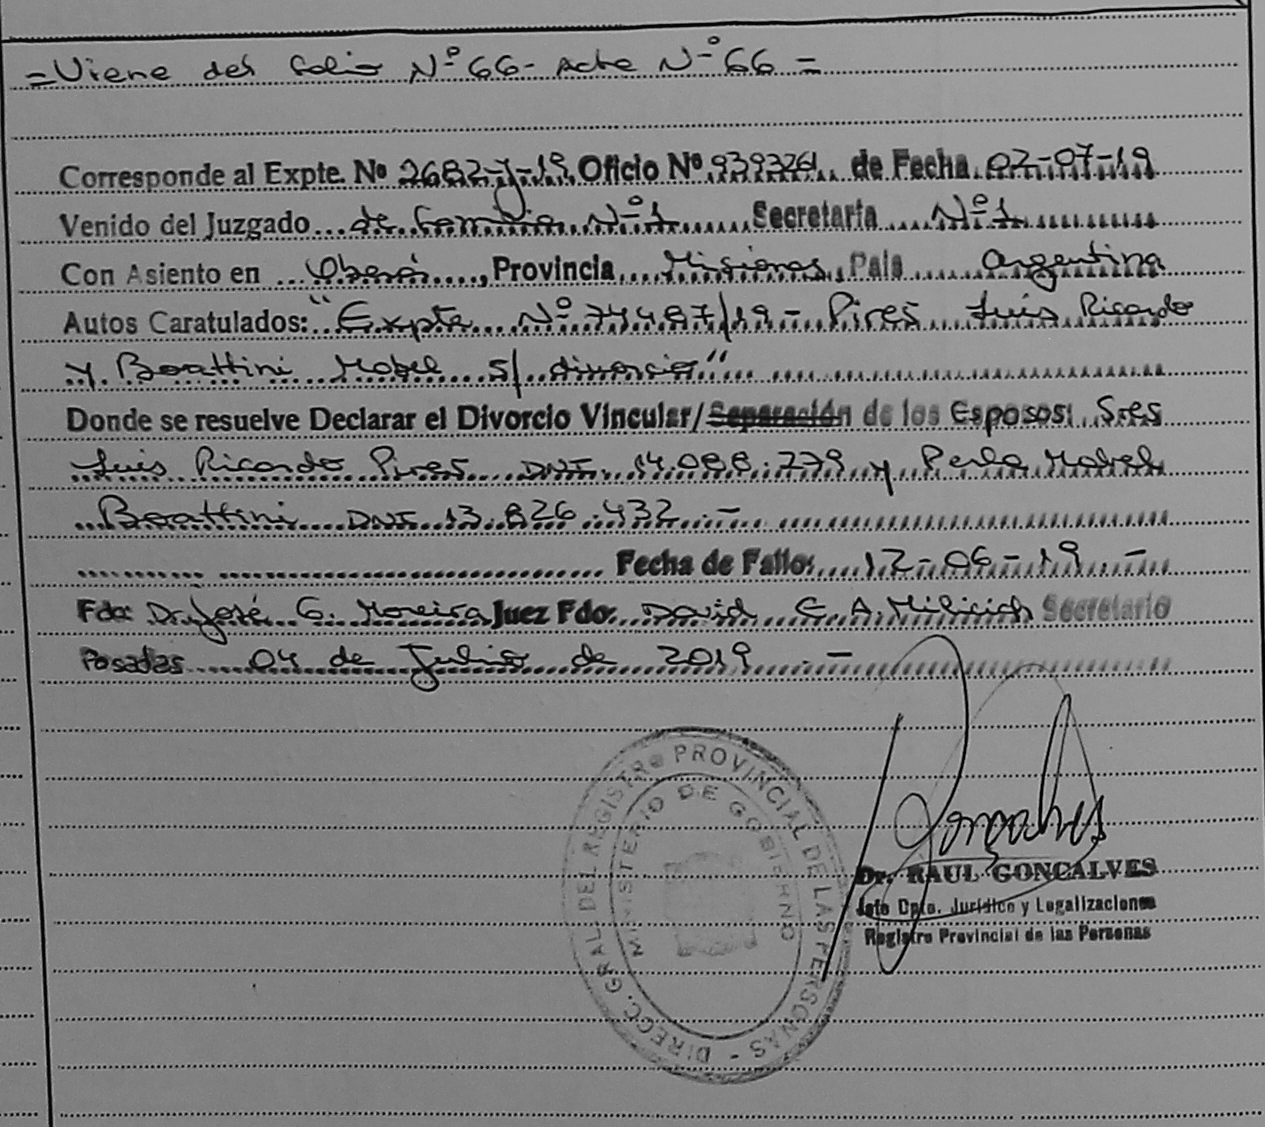 =Viene del folio Nº 66- Acta Nº 66 =
Corresponde al Expte. Nº 2682-J-19. Oficio Nº 939326 de Fecha 02-07-19
Venido del Juzgado de Familia Nº 1 Secretaria Nº 1
Con Asiento en Oberá, Provincia Misiones País Argentina
Autos Caratulados: "Expte Nº 74487/19 - Pires Luis Ricardo
y Boattini Mabel s/ divorcio"
Donde se resuelve Declarar el Divorcio Vincular/Separación de los Esposos: Sres
Luis Ricardo Pires DNI 14.088.779 y Perla Mabel
Boattini DNI 13.826.432.-
Fecha de Fallo: 12-06-19.-
Fdo: Dr. José G. Moreira Juez Fdo: David E. A. Milicich Secretario
Posadas 04 de Julio de 2019.-
DIRECC. GRAL DEL REGISTRO PROVINCIAL DE LAS PERSONAS -
MINISTERIO DE GOBIERNO
Dr. RAUL GONCALVES
Jefe Dpto. Jurídico y Legalizaciones
Registro Provincial de las Personas